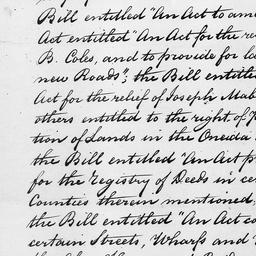 Bill entitled "An Act to ame
Act entitled "An Act for the re
B. Coles, and to provide for la
new Roads", the Bill entitle
Act for the relief of Joseph Mab
others entitled to the right of
tion of Lands in the Oneida
the Bill entitled "An Act p
for the Registry of Deeds in ce
Counties therein mentioned
the Bill entitled "An Act co
certain Streets, Wharfs and